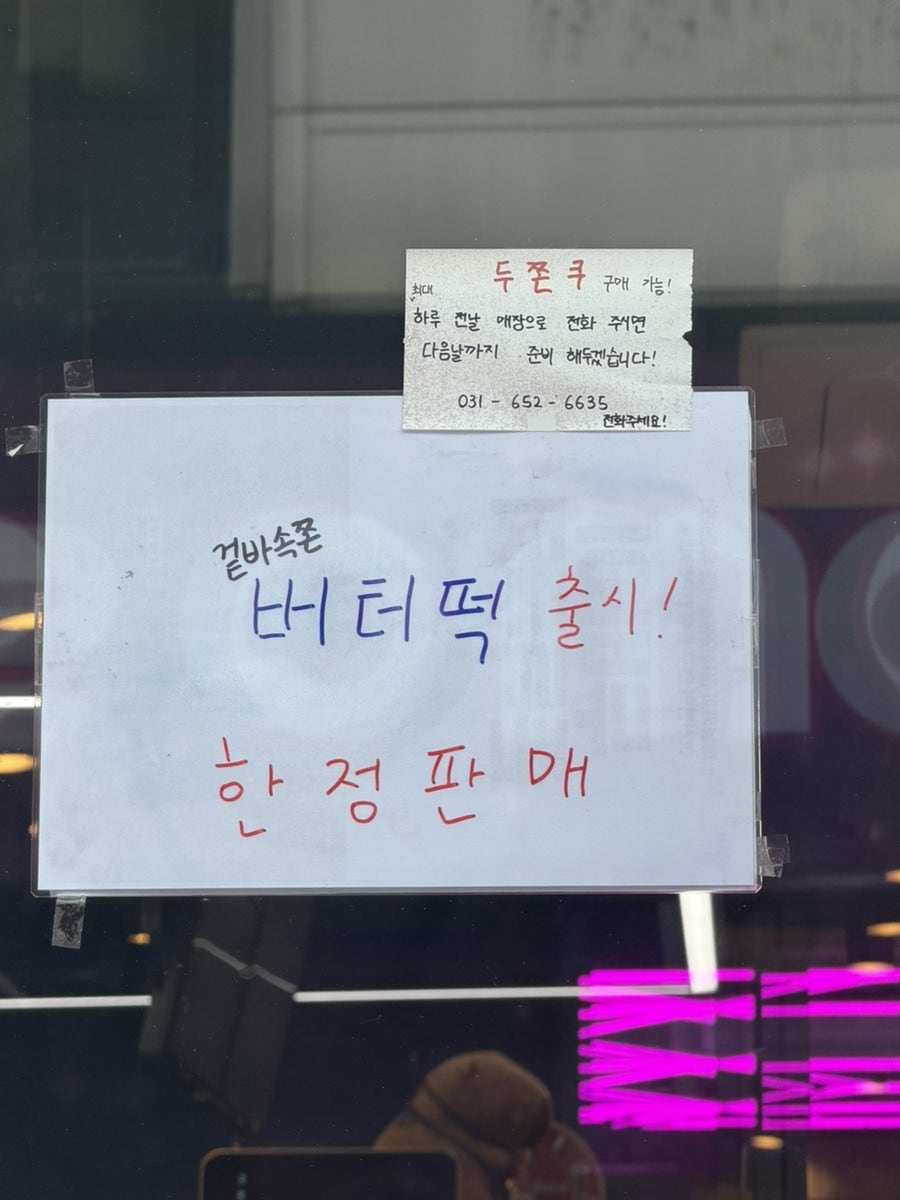 두쫀쿠 구매 가능!
최대
하루 전날 매장으로 전화 주시면
다음날까지 준비 해두겠습니다!
031 - 652 - 6635
전화주세요!
겉바속쫀
버터떡 출시!
한정판매